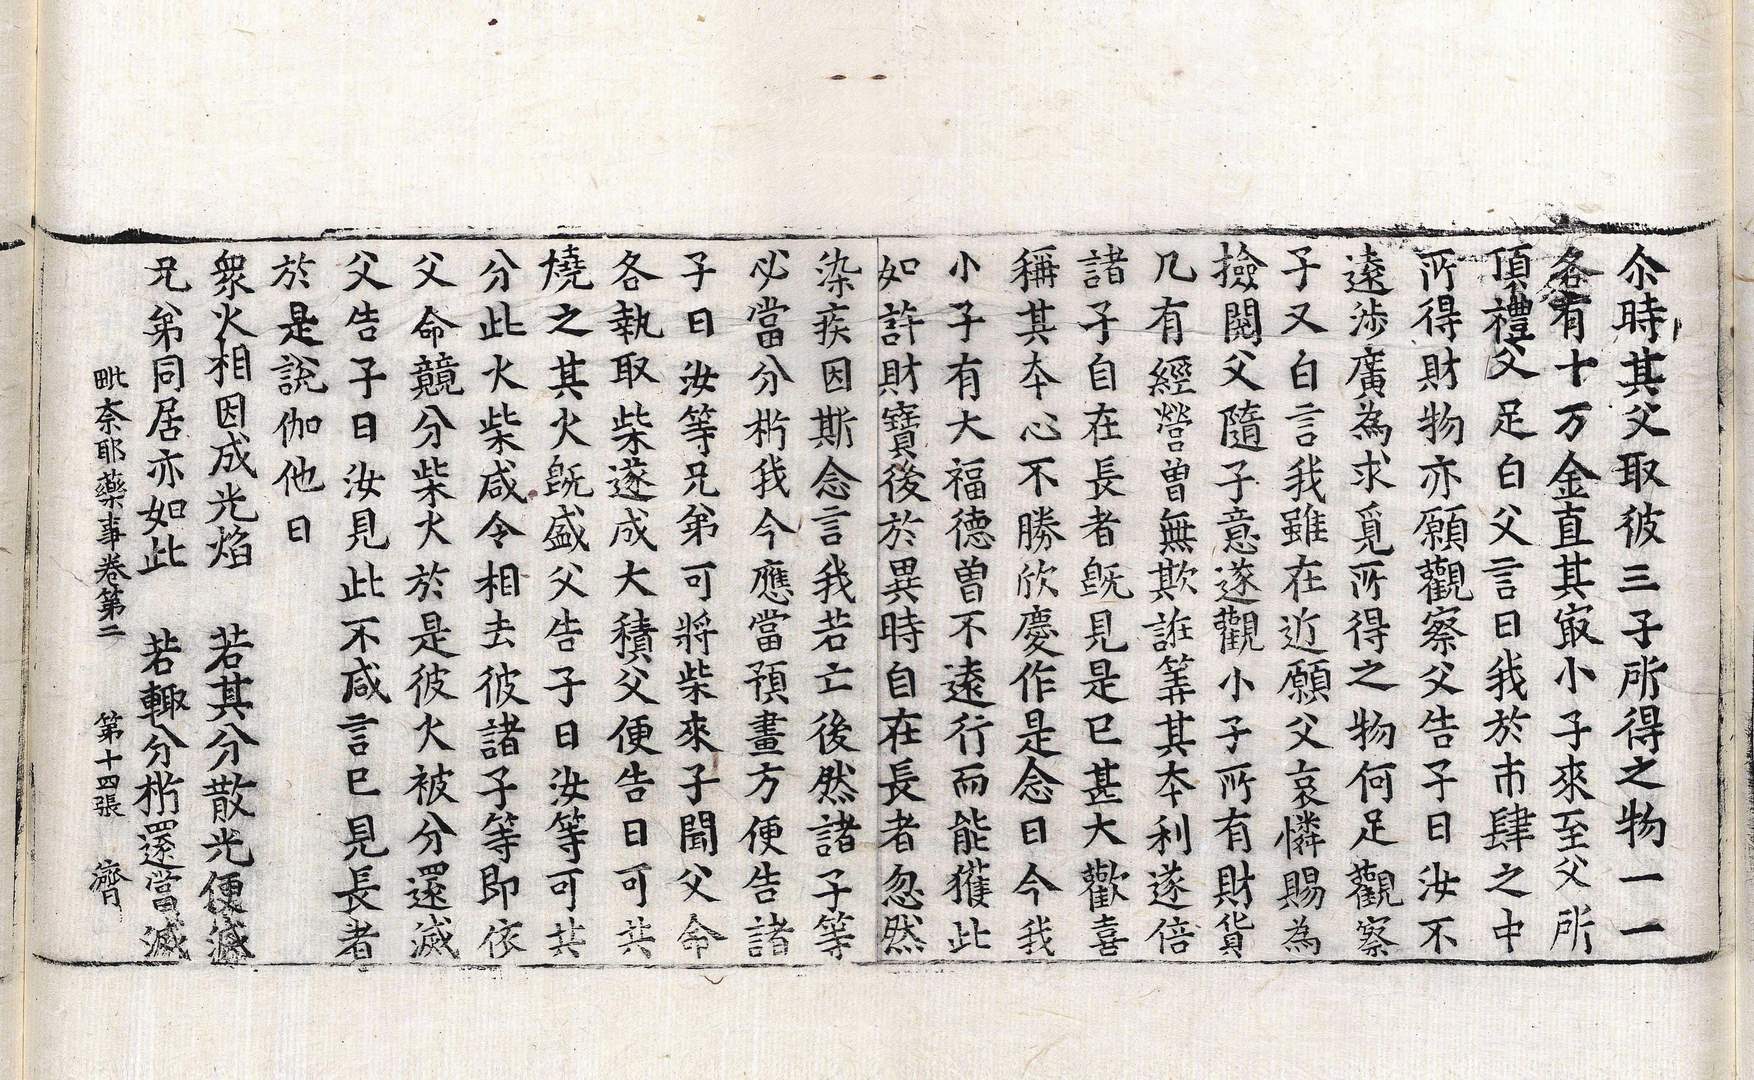 尒時其父取彼三子所得之物一一
各有十万金直其㝡小子來至父所
頂禮父足白父言曰我於市肆之中
所得財物亦願觀察父告子曰汝不
遠涉廣為求覓所得之物何足觀察
子又白言我雖在近願父哀憐賜為
撿閱父隨子意遂觀小子所有財貨
凡有經營曽無欺誑筭其本利遂倍
諸子自在長者旣見是已甚大歡喜
稱其夲心不勝欣慶作是念曰今我
小子有大福德曽不遠行而能獲此
如許財寶後於異時自在長者忽然
染疾因斯念言我若亡後然諸子等
必當分析我今應當預畫方便告諸
子曰汝等兄弟可將柴來子聞父命
各執取柴遂成大積父便告曰可共
燒之其火旣盛父告子曰汝等可共
分此火柴咸令相去彼諸子等即依
父命競分柴火於是彼火被分還滅
父告子曰汝見此不咸言已見長者
於是說伽他曰
衆火相因成光焰　若其分散光便滅
兄弟同居亦如此　若輙分析還當滅
毗奈耶藥事卷第二　第十四張　濟